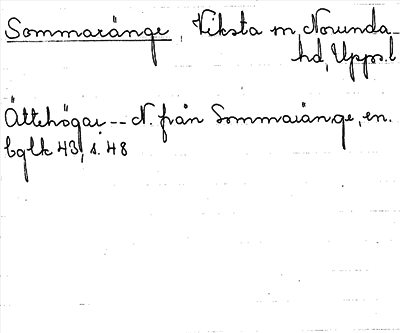 Sommaränge, Viksta sn, Norunda-
hd, Uppl.
Ättehögar -- N. från Sommaränge, en.
bglk 43, s. 48